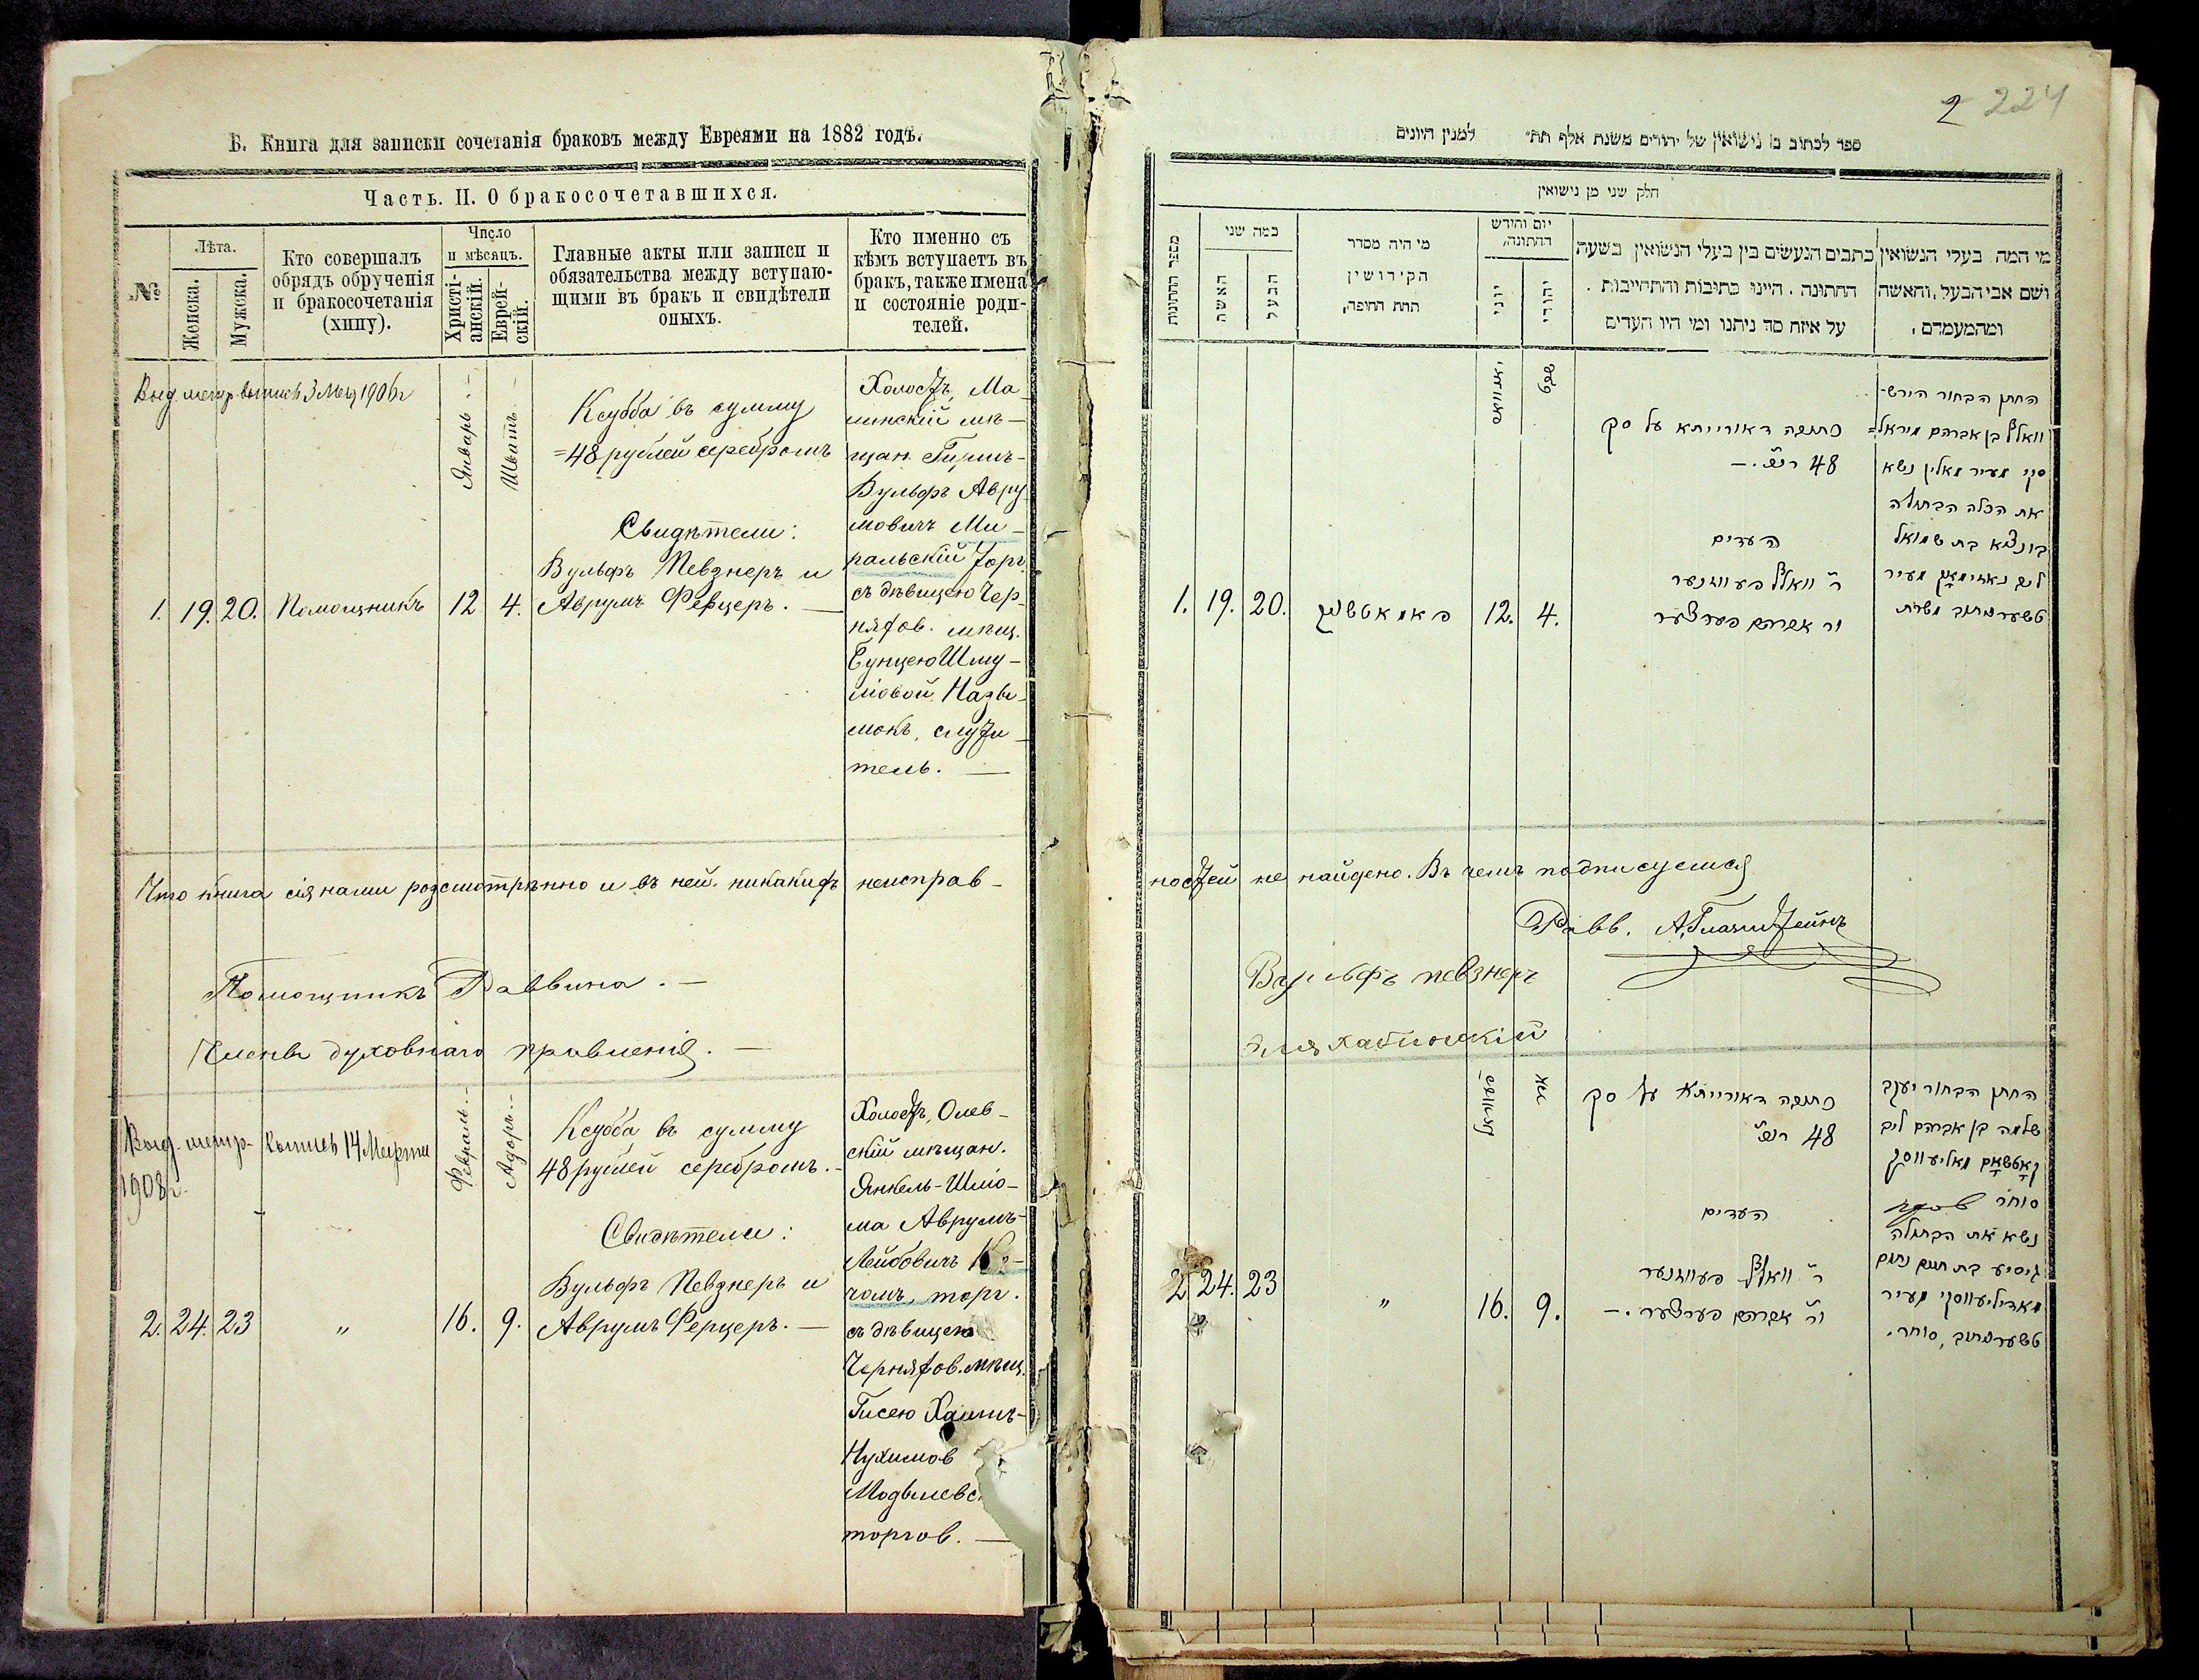 Б. Книга для записки сочетанія браковъ между Евреями на 1882 годъ.
Часть. II. О бракосочетавшихся.
№
Лѣта.
Женска.
Мужска.
Кто совершалъ
обрядъ обрученія
и бракосочетанія
(хипу).
Число
и мѣсяцъ.
Христі-
анскій.
Еврей-
скій.
Главные акты или записи и
обязательства между вступаю-
щими въ бракъ и свидѣтели
оныхъ.
Кто именно съ
кѣмъ вступаетъ въ
бракъ, также имена
и состояніе роди-
телей.
1906 г
Январь
Шватъ
Ксубба въ сумму
=48 рублей серебромъ
Свидѣтели:
Вульфъ Певзнеръ и
1. 19. 20. Помощникъ 12 4. Аврумъ Ферцеръ. —
Холостъ, Ма-
линскій мѣ-
щан. Гиршъ-
Вульфъ Авру-
мовичъ Ми-
ральскій торг.
съ дѣвицею Чер-
няхов. мѣщ.
Бунцею Шму-
ліовой Назы-
мокъ, служи-
тель. —
Что книга сія нами розсмотрѣнно и въ ней никакихъ неисправ-
Помощникъ Раввина. —
Члены духовнаго правленія. —
Выд. метр. выпись 14 Марта
1908 г.
Февраль
Адоръ
Ксубба въ сумму
48 рублей серебромъ. -
Свидѣтели:
Вульфъ Певзнеръ и
2. 24. 23 " 16. 9. Аврумъ Ферцеръ. —
Холостъ, Олев-
скій мѣщан.
Янкель-Шліо-
ма Аврумъ-
Лейбовичъ
чомъ, торг.
съ дѣвицею
Черняхов. мѣщ.
Гисею Хаимъ-
Нухимов
торгов. —
2 224
ספר לכתוב בו נישואין של יהודים משנת אלף תת״ למנין היונים
חלק שני מן נישואין
מספר החתונות
כמה שני
האשה
הבעל
מי היה מסדר
הקידושין
תחת החופה,
יום וחודש
החתונה,
יוני
יהודי
כתבים הנעשים בין בעלי הנשואין בשעת
החתונה. היינו כתובות והתחייבות.
על איזה סך ניתנו ומי היו העדים
מי המה בעלי הנשואין
ושם אבי הבעל, והאשה
ומהמעמדם,
יאנוואר
שבט
כתובה דאורייתא על סך
48 רו״כ. —
העדים
ר׳ וואלף פעווזנער
1. 19. 20. 12. 4. ור׳ אברהם פערצער
החתן הבחור הירש-
וואלף בן אברהם מיראל=
סקי מעיר מאלין נשא
את הכלה הבתולה
בונצא בת שמואל
טשערניחוב משרת
ностей не найдено. Въ чемъ подписуемся
Равв. А. Глазштейнъ
Вульфъ певзнеръ
פעווראל
אדר
כתובה דאורייתא על סך
48 רו״כ
העדים
ר׳ וואלף פעווזנער
2 24. 23 " 16. 9. ור׳ אברהם פערצער. —
החתן הבחור יעקב
שלמה בן אברהם ליב
סוחר
נשא את הבתולה
גיסיע בת חיים נחום
מעיר
טשערניחוב, סוחר.